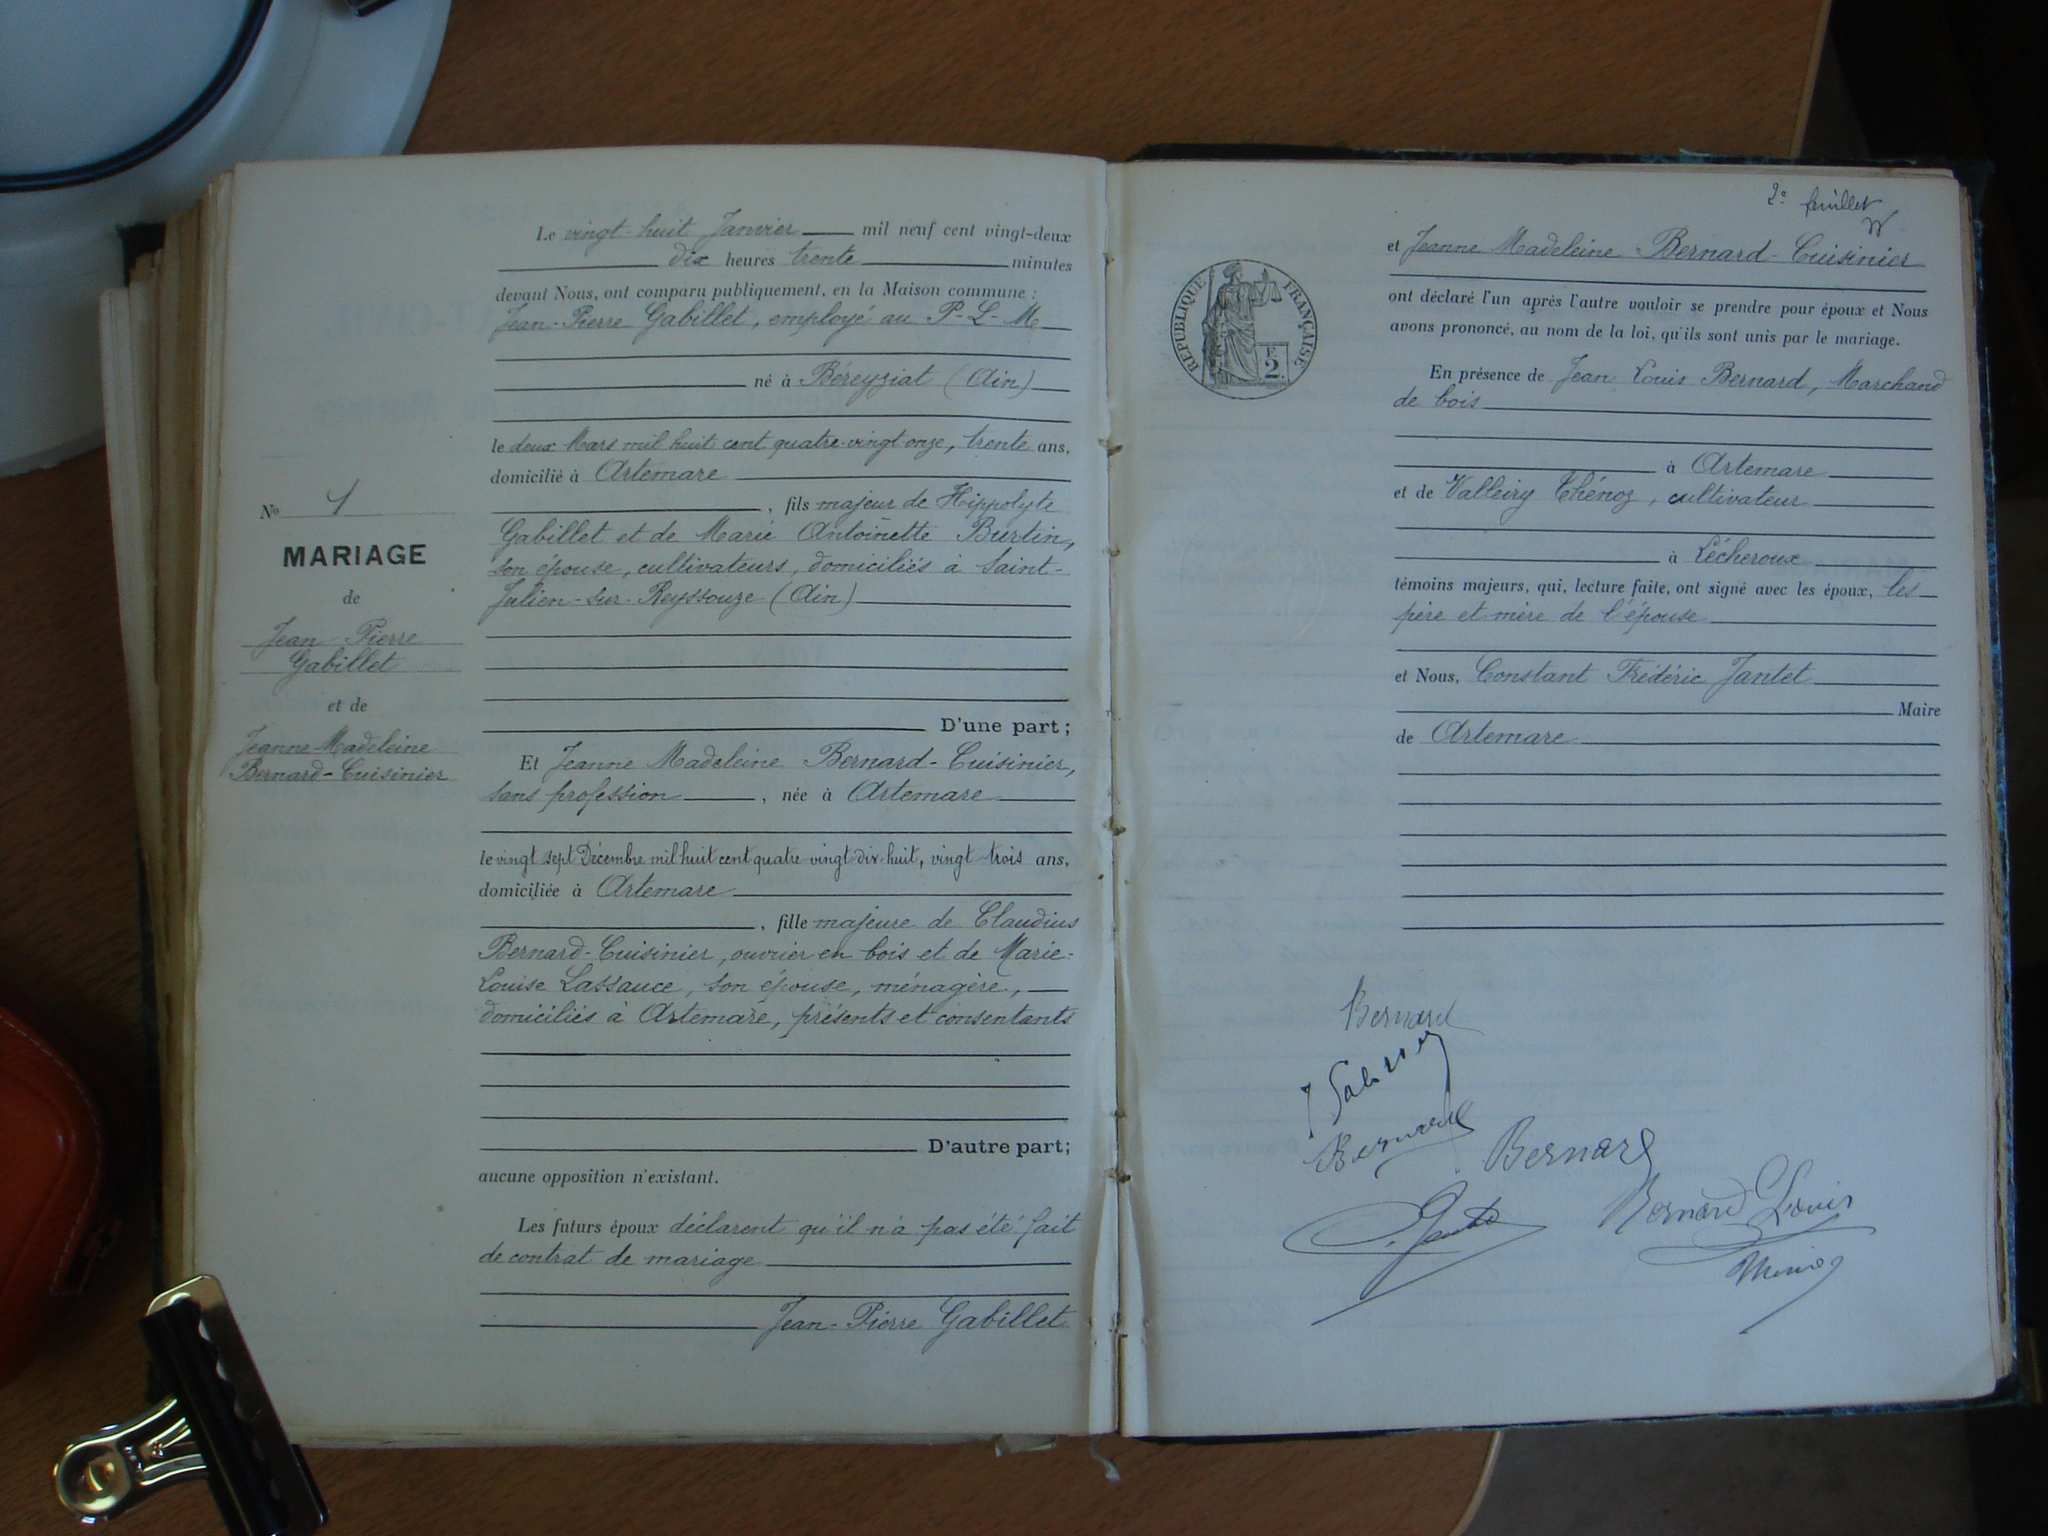 Le vingt-huit Janvier mil neuf cent vingt-deux
dix heures trente minutes
devant Nous, ont comparu publiquement, en la Maison commune :
Jean-Pierre Gabillet, employé au P-L-M
né à Béreyziat (Ain)
le deux Mars mil huit cent quatre-vingt-onze, trente ans,
domicilié à Artemare
, fils majeur de Hippolyte
Gabillet et de Marie Antoinette Burtin,
son épouse, cultivateurs, domiciliés à Saint-
Julien-sur-Reyssouze (Ain)
D'une part ;
Et Jeanne Madeleine Bernard-Cuisinier,
sans profession, née à Artemare
le vingt sept Décembre mil huit cent quatre vingt dix-huit, vingt trois ans,
domiciliée à Artemare
, fille majeure de Claudius
Bernard-Cuisinier, ouvrier en bois et de Marie-
Louise Lassauce, son épouse, ménagère,
domiciliés à Artemare, présents et consentants
D'autre part ;
aucune opposition n'existant.
Les futurs époux déclarent qu'il n'a pas été fait
de contrat de mariage
Jean-Pierre Gabillet
No 1
MARIAGE
de
Jean-Pierre
Gabillet
et de
Jeanne Madeleine
Bernard-Cuisinier
2e feuillet
et Jeanne Madeleine Bernard-Cuisinier
ont déclaré l'un après l'autre vouloir se prendre pour époux et Nous
avons prononcé, au nom de la loi, qu'ils sont unis par le mariage.
En présence de Jean Louis Bernard, Marchand
de bois
à Artemare
et de Valleiry Thénoz, cultivateur
à Lécheroux
témoins majeurs, qui, lecture faite, ont signé avec les époux, les
père et mère de l'épouse
et Nous, Constant Frédéric Jantet
Maire
de Artemare
RÉPUBLIQUE FRANÇAISE
F
2
Bernard
Bernard
Bernard
Bernard Louis